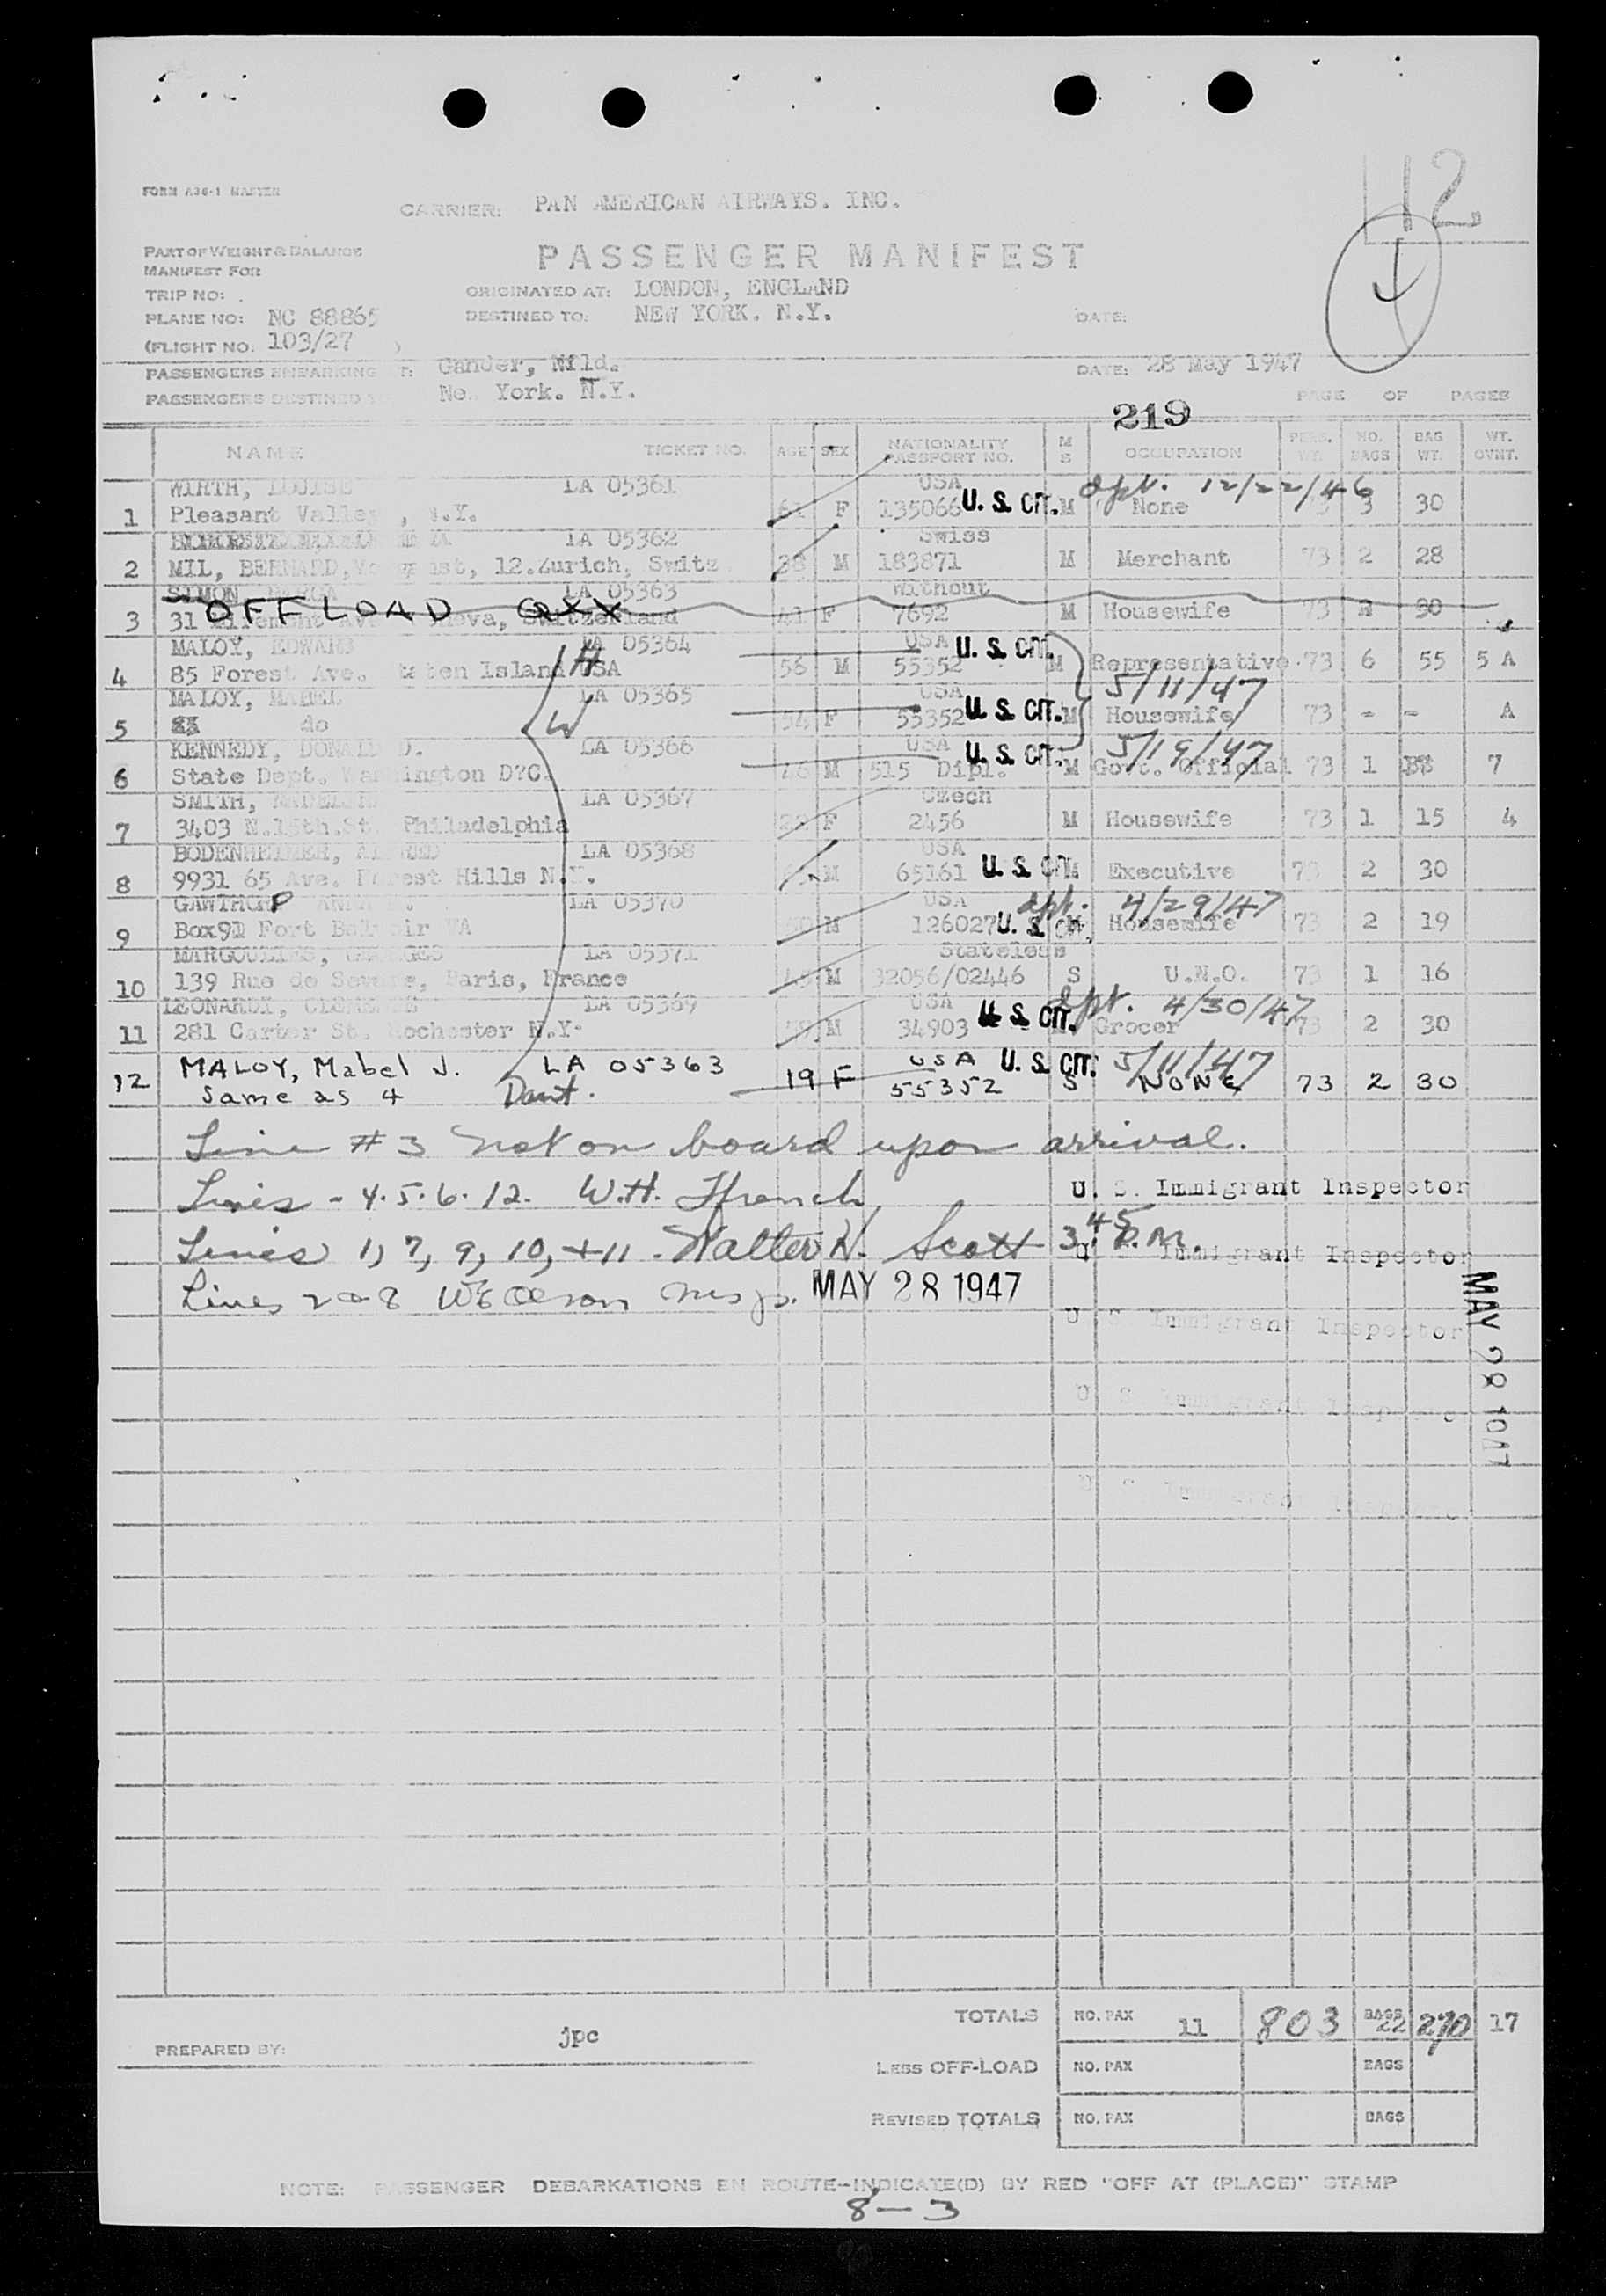 12
FORM A36-1 MASTER
CARRIER: PAN AMERICAN AIRWAYS. INC.
PART OF WEIGHT & BALANCE
MANIFEST FOR
PASSENGER MANIFEST
TRIP NO:
ORIGINATED AT: LONDON, ENGLAND
PLANE NO: NC 88865
DESTINED TO: NEW YORK. N.Y.
DATE:
(FLIGHT NO: 103/27 )
PASSENGERS EMBARKING AT: Gander, Nfld.
DATE: 28 May 1947
PASSENGERS DESTINED York. N.Y.
219
PAGE OF PAGES
NAME TICKET NO. AGE SEX NATIONALITY PASSPORT NO. M S OCCUPATION PERS. WT. NO. BAGS BAG WT. WT. OVNT.
WIRTH, LOUISE LA 05361 USA dpt. 12/22/46
1 Pleasant Valley, N.Y. F 135066 U. S. CIT. M None 3 30
LA 05362 Swiss
2 MIL, BERNARD, 12.Zurich, Switz 38 M 183871 M Merchant 73 2 28
SIMON LA 05363 Without
OFFLOAD QXX
3 31 Switzerland 41 F 7692 M Housewife 73 30
MALOY, EDWARD LA 05364 USA U. S. CIT.
4 85 Forest Ave. Staten Island USA H 56 M 55352 M Representative 73 6 55 5 A
MALOY, MABEL LA 05365 USA 5/11/47
5 do W 54 F 55352 U. S. CIT. M Housewife 73 - - A
KENNEDY, DONALD D. LA 05366 USA U. S. CIT. 5/19/47
6 State Dept. Washington D?C. 46 M 515 Dipl. M Govt. Official 73 1 7
SMITH, LA 05367 Czech
7 3403 N.15th.St. Philadelphia F 2456 M Housewife 73 1 15 4
BODENHEIMER, LA 05368 USA
8 9931 65 Ave. Forest Hills N.Y. M 65161 U. S. CIT. M Executive 73 2 30
GAWTHORP LA 05370 USA dpt. 4/29/47
9 Box91 Fort Belvoir VA M 126027 U. S. CIT. M Housewife 73 2 19
MARGOULIES, GEORGES LA 05371 Stateless
10 139 Rue de Sevres, Paris, France M 32056/02446 S U.N.O. 73 1 16
LEONARDI, CLEMENCE LA 05369 USA dpt. 4/30/47
11 281 Carter St. Rochester N.Y. M 34903 U. S. CIT. Grocer 73 2 30
12 MALOY, Mabel J. LA 05363 USA U. S. CIT. 5/11/47
Same as 4 Daut. 19 F 55352 S NONE 73 2 30
Line #3 not on board upon arrival.
Lines - 4.5.6.12. W.H. Ffrench U. S. Immigrant Inspector
Lines 1, 7, 9, 10, + 11. Walter N. Scott 3:45 P.M.
U. S. Immigrant Inspector
Lines 2 & 8 MAY 28 1947
MAY 28 1947
U. S. Immigrant Inspector
U. S. Immigrant Inspector
U. S. Immigrant Inspector
TOTALS NO. PAX 11 803 BAGS 22 270 17
PREPARED BY: jpc
LESS OFF-LOAD NO. PAX BAGS
REVISED TOTALS NO. PAX BAGS
NOTE: PASSENGER DEBARKATIONS EN ROUTE-INDICATE(D) BY RED "OFF AT (PLACE)" STAMP
8-3